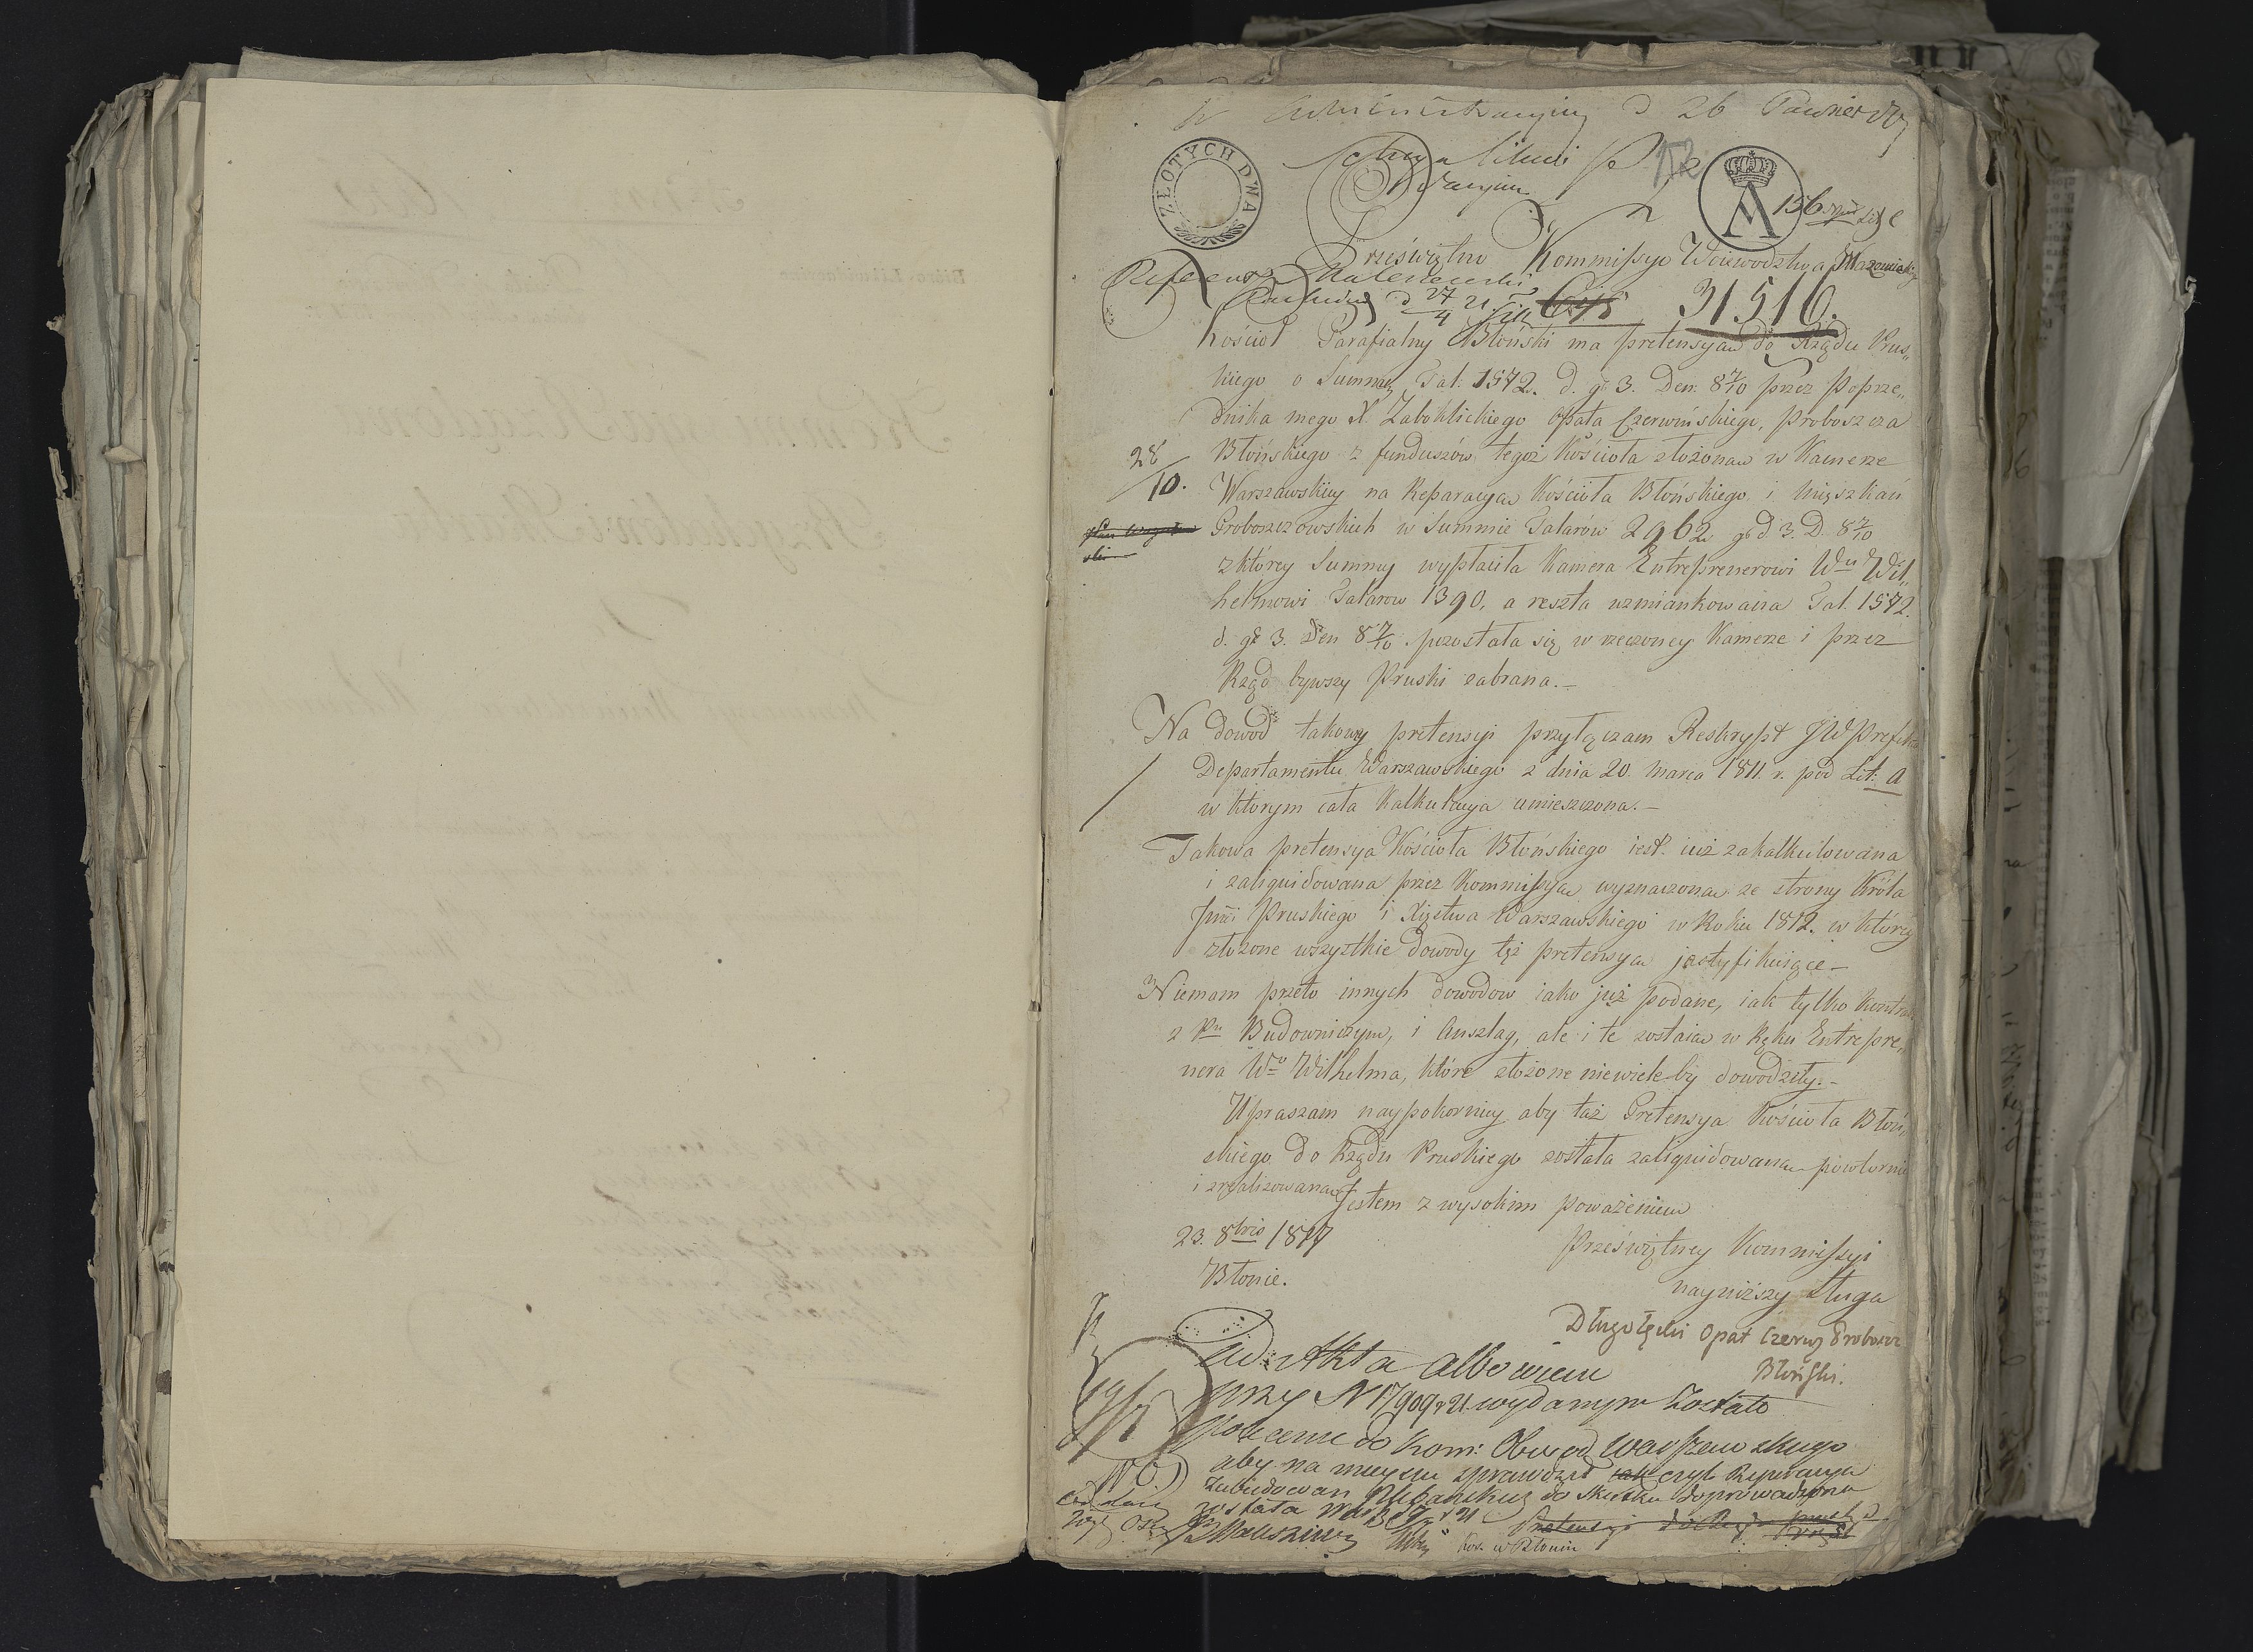 d 26
ZŁOTYCH DWA
156
Prześwietna Kommissyo Woiewodztwa Mazowieckiego
Referent
31510.
Kościoł Parafialny Błoński ma pretensyą do Rządu Prus„
kiego o Summę Tal: 1572. d. gr 3. Den: 8 7/10 przez Poprze„
dnika mego X. Zaboklickiego Opata Czerwińskiego, Proboszcza
28/10. Błońskiego z funduszów tegoż Kościoła złożoną w Kamerze
Warszawskiey na Reparacyą Kościoła Błońskiego, i mięszkań
Proboszczowskich w Summie Talarów 2962 gr d. 3. D. 8 7/10
z którey Summy wypłaciła Kamera Entreprenerowi Wu Wil„
helmowi Talarow 1390, a reszta wzmiankowana Tal. 1572.
d. gr 3. Den 8 7/10. pozostała się w rzeczoney Kamerze i przez
Rząd bywszy Pruski zabrana.–
Na dowod takowey pretensyi przyłączam Reskrypt JW Prefekta
Departamentu Warszawskiego z dnia 20. Marca 1811. r. pod Lit: A
w ktorym cała Kalkulacya umieszczona.–
Takowa pretensya Kościoła Błońskiego iest. iuż zakalkulowana
i zaliquidowana przez Kommissyą wyznaczoną ze strony Króla
Jmci Pruskiego i Xięstwa Warszawskiego w Roku 1812. w którey
złożone wszystkie dowody też pretensyą justyfikuiące –
Niemam przeto innych dowodow iako już podane, iak tylko Kontrakt
z Pm Budowniczym, i Anszlag, ale i te zostaią w Ręku Entrepre„
nera Wo Wilhelma, które złożone niewiele by dowodziły.–
Upraszam naypokorniey aby taż Pretensya Kościoła Błoń„
skiego do Rządu Pruskiego została zaliquidowaną powtornie
i zrealizowaną. Jestem z wysokim poważeniem
23. 8bris 1817
Prześwietney Kommissyi
Błonie.
nayniższy sługa
Długołęcki Opat Czerw. Proboszcz
Błoński.
Ad Akta albowiem
przy N 17909 r 21 wydanym zostało
polecenie do Kom: Obwod Warszawskiego
aby na mieyscu sprawdził czyli Reperacya
Zabudowan Plebańskich do skutku doprowadzona
została
Kos. w Błoniu